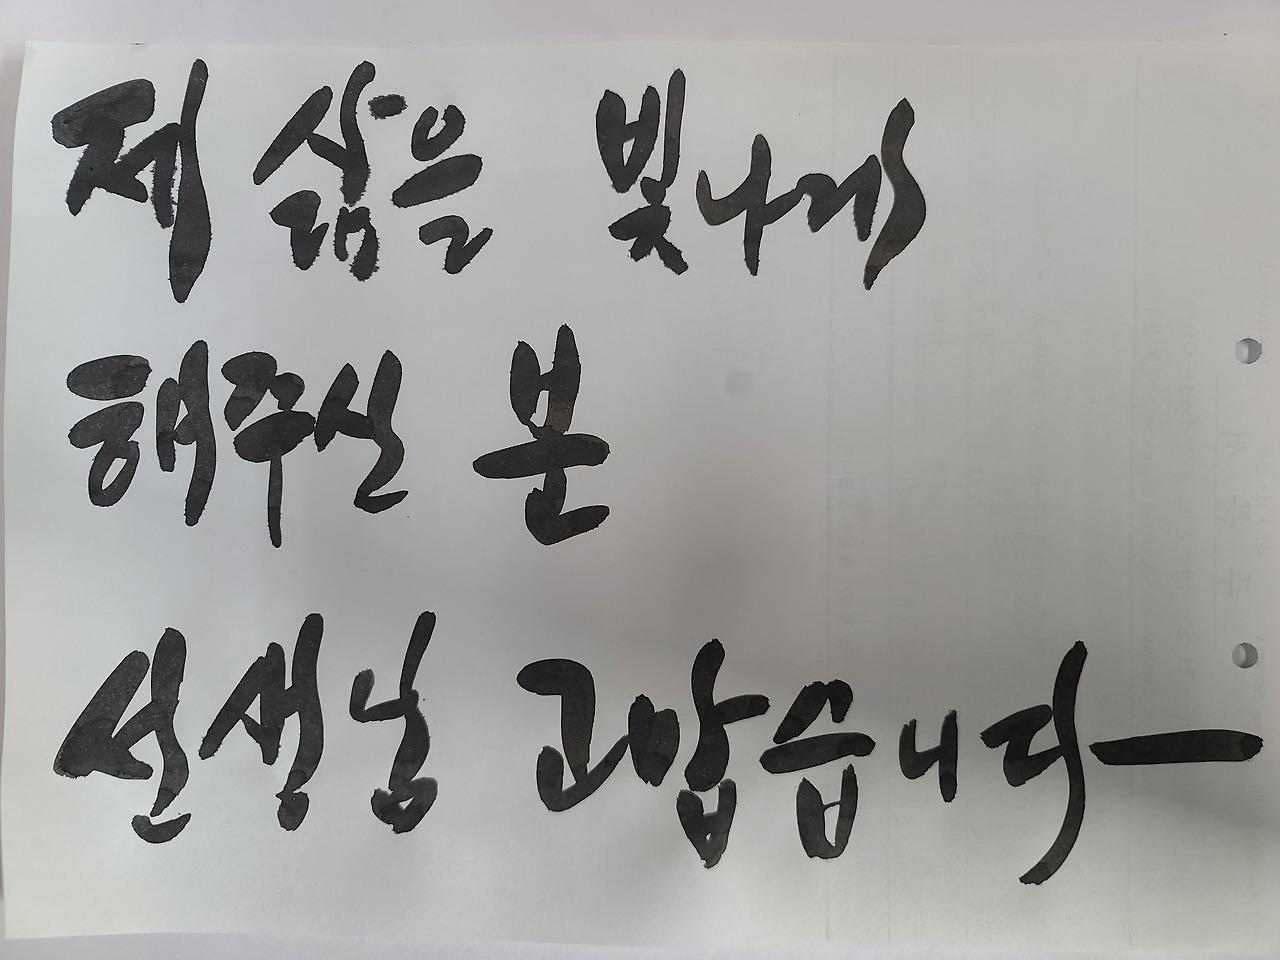 제 삶을 빛나게
해주신 분
선생님 고맙습니다